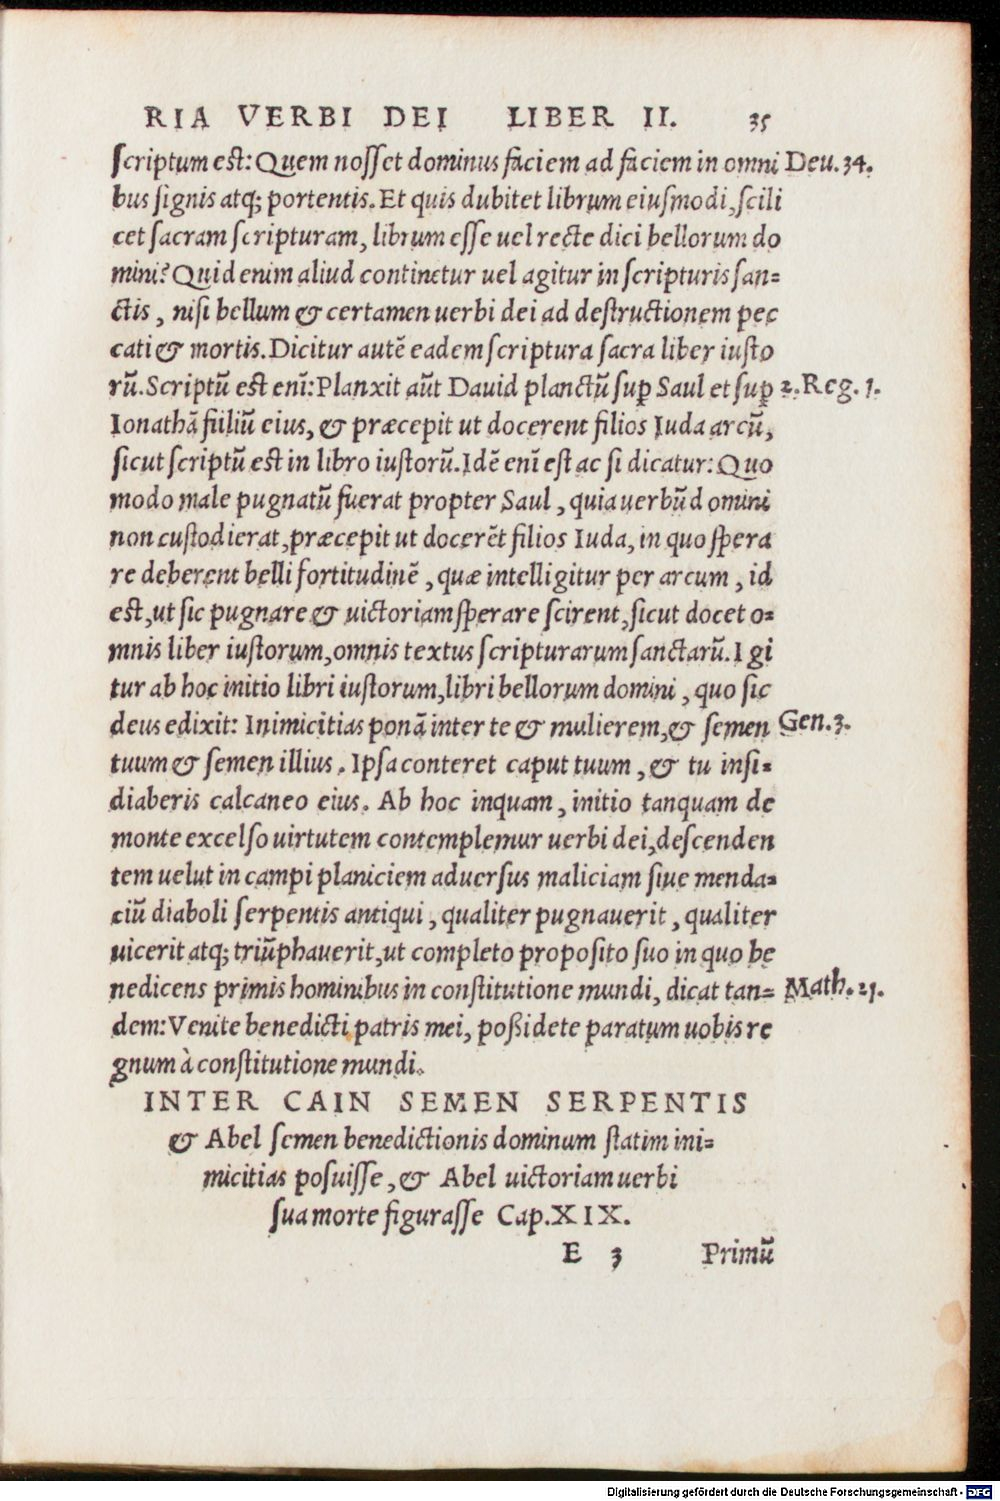 RIA VERBI DEI LIBER II. 35
scriptum est: Quem nosset dominus faciem ad faciem in omni Deu. 34.
bus signis atq; portentis. Et quis dubitet librum eiusmodi, scili
cet sacram scripturam, librum esse uel recte dici bellorum do
mini? Quid enim aliud continetur uel agitur in scripturis san=
ctis, nisi bellum & certamen uerbi dei ad destructionem pec
cati & mortis. Dicitur autē eadem scriptura sacra liber iusto
rū. Scriptū est enī: Planxit aūt Dauid planctū sup̱ Saul et sup̱ 2. Reg. 1.
Ionathā fiiliū eius, & præcepit ut docerent filios Iuda arcū,
sicut scriptū est in libro iustorū. Idē enī est ac si dicatur: Quo
modo male pugnatū fuerat propter Saul, quia uerbū domini
non custodierat, præcepit ut docerēt filios Iuda, in quo spera
re deberent belli fortitudinē, quæ intelligitur per arcum, id
est, ut sic pugnare & uictoriam sperare scirent, sicut docet o=
mnis liber iustorum, omnis textus scripturarum sanctarū. I gi
tur ab hoc initio libri iustorum, libri bellorum domini, quo sic
deus edixit: Inimicitias ponā inter te & mulierem, & semen Gen. 3.
tuum & semen illius. Ipsa conteret caput tuum, & tu insi=
diaberis calcaneo eius. Ab hoc inquam, initio tanquam de
monte excelso uirtutem contemplemur uerbi dei, descenden
tem uelut in campi planiciem aduersus maliciam siue menda=
ciū diaboli serpentis antiqui, qualiter pugnauerit, qualiter
uicerit atq; triūphauerit, ut completo proposito suo in quo be
nedicens primis hominibus in constitutione mundi, dicat tan= Math. 21.
dem: Venite benedicti patris mei, poßidete paratum uobis re
gnum à constitutione mundi.
INTER CAIN SEMEN SERPENTIS
& Abel semen benedictionis dominum statim ini=
micitias posuisse, & Abel uictoriam uerbi
sua morte figurasse Cap. XIX.
E 3 Primū
Digitalisierung gefördert durch die Deutsche Forschungsgemeinschaft - DFG